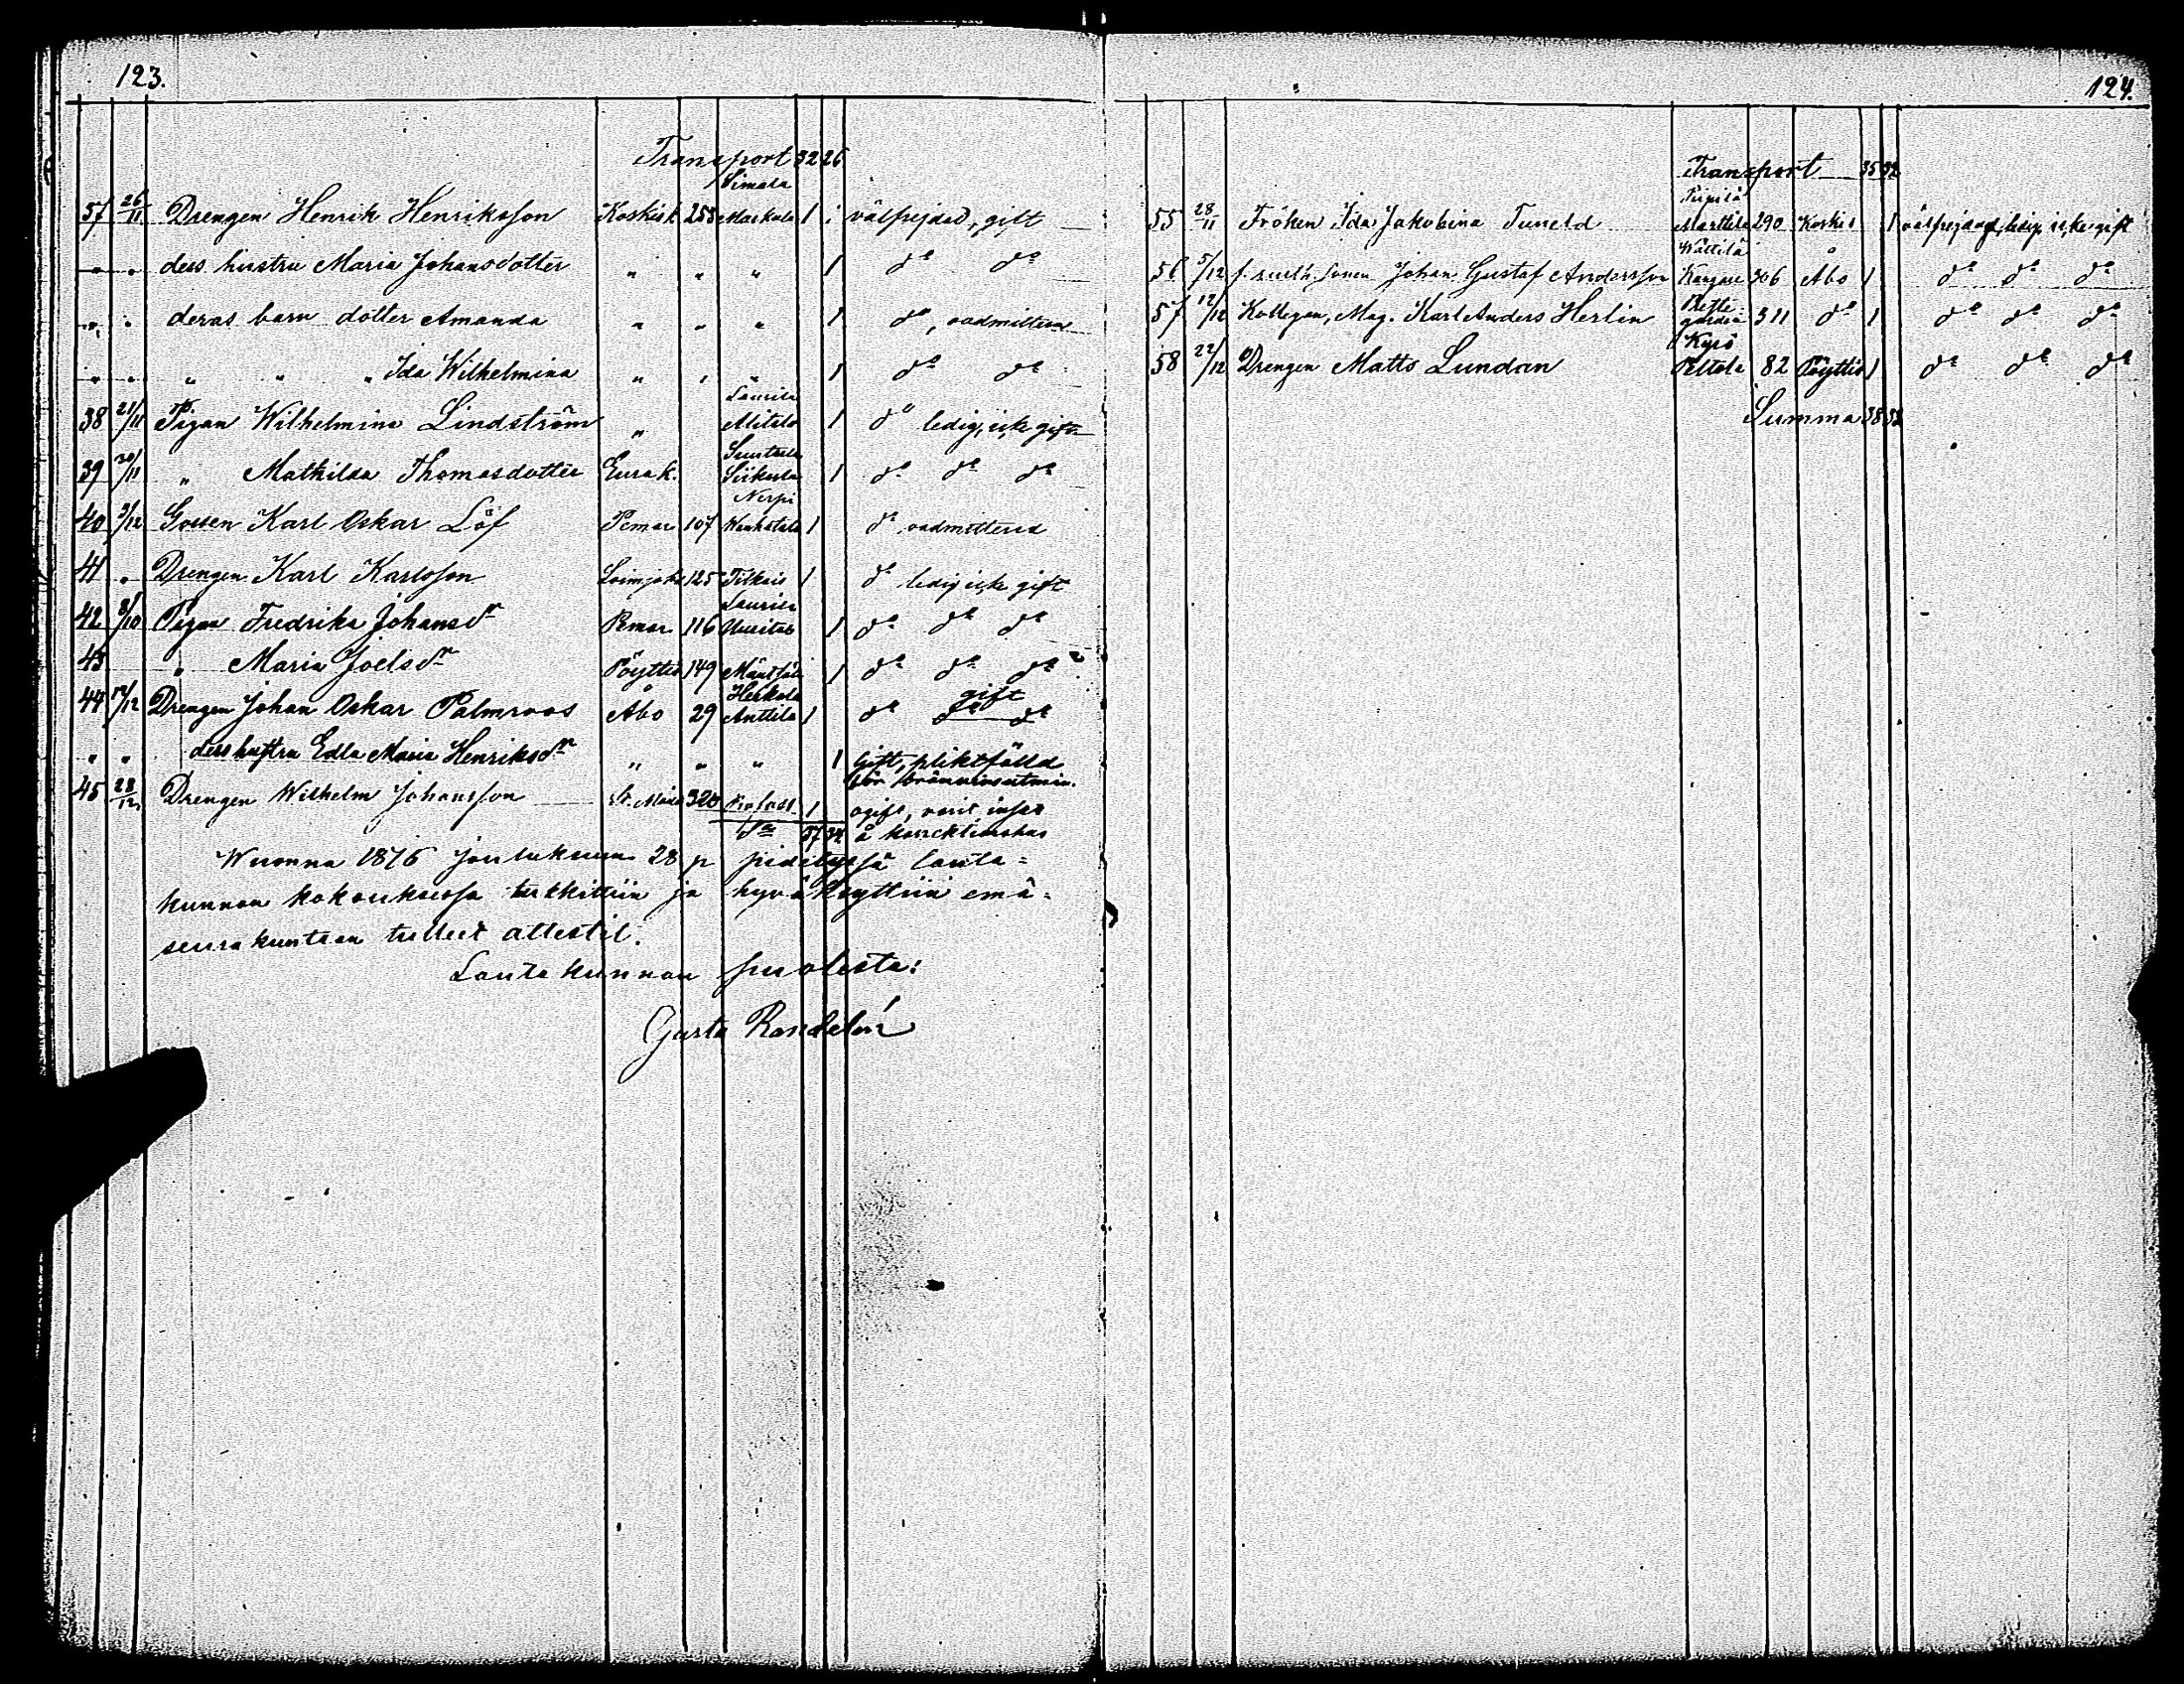 123.
Transport 32 26
57 26/11 Drengen Henrik Henriksson Koskis k. 255 Simala Markula 1 välfrejdad, gift
" " dess hustru Maria Johansdotter " " " 1 do do
" " deras barn dotter Amanda " " " 1 do, oadmitterad
" " " " " Ida Wilhelmina " " " 1 do do
38 21/11 Pigan Wilhelmina Lindström " Laurila Mitala 1 do ledig, icke gift
39 30/11 " Mathilda Thomasdotter Eura k. Suutala 1 do do do
40 9/12 Gossen Karl Oskar Löf Pemar 107 1 do oadmitterad
41 " Drengen Karl Karlsson Loimjoki 125 1 do ledig icke gift
42 8/10 Pigan Fredrika Johansdr Pemar 116 Laurila 1 do do do
43 " Maria Joelsdr Pöyttis 149 1 do do do
44 12/12 Drengen Johan Oskar Palmroos Åbo 29 Heikola Anttila 1 do gift do do
" " dess hustru Edla Maria Henriksdr " " " 1 Gift, pliktfälld
för brännvinsutmin.
45 28/12 Drengen Wilhelm Johansson St. Maria 320 1 ogift, varit
Sa 37 34 å
Wuonna 1876 Joulukuun 28 p pidetyssä lauta=
kunnan kokouksessa tutkittiin ja hyväksyttiin emä=
seurakuntaan tulleet attestit.
Lautakunnan puolesta:
Gusta Randelin
124.
Transport 35 32
55 28/11 Fröken Ida Jakobina Tuneld Marttila 290 Koskis 1 välfrejdad, ledig, icke gift
56 5/12 f. Johan Gustaf Andersson Wättilä 306 Åbo 1 do do do
57 12/12 Kollegan, Mag. Karl Anders Herlin 311 do 1 do do do
58 22/12 Drengen Matts Lundan Kyrö Peltola 82 Pöyttis 1 do do do
Summa 38 32